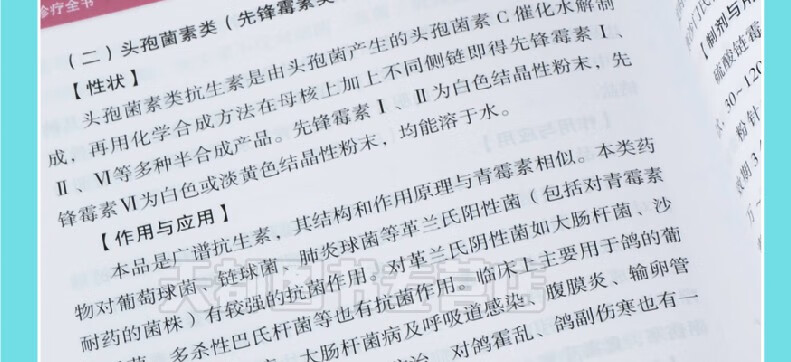 诊疗全书
（二）头孢菌素类（先锋霉素类
【性状】
头孢菌素类抗生素是由头孢菌产生的头孢菌素C催化水解制
成，再用化学合成方法在母核上加上不同侧链即得先锋霉素Ⅰ、
Ⅱ、Ⅵ等多种半合成产品。先锋霉素Ⅰ、Ⅱ为白色结晶性粉末，先
锋霉素Ⅵ为白色或淡黄色结晶性粉末，均能溶于水。
【作用与应用】
本品是广谱抗生素，其结构和作用原理与青霉素相似。本类药
物对葡萄球菌、链球菌、肺炎球菌等革兰氏阳性菌（包括对青霉素
耐药的菌株）有较强的抗菌作用。对革兰氏阴性菌如大肠杆菌、沙
多杀性巴氏杆菌等也有抗菌作用。临床上主要用于鸽的葡
大肠杆菌病及呼吸道感染、腹膜炎、输卵管
对鸽霍乱、鸽副伤寒也有一
【制剂与用
硫酸链霉
30~120
粉针
效期3
万